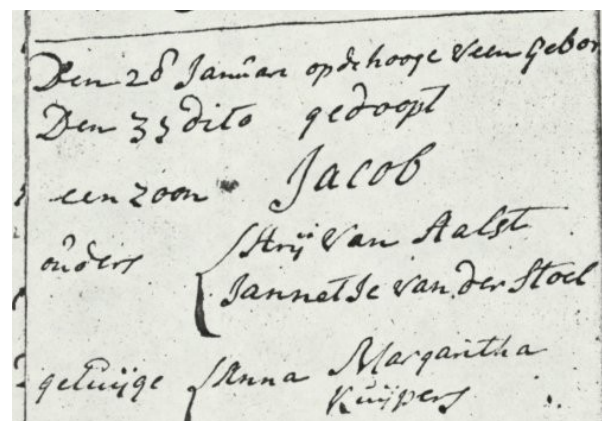 Den 28 Januari op de hooge Veen gebor
Den 31 dito gedoopt
een zoon Jacob
ouders Arij Van Aalst
Jannetje van der Stoel
getuijge Anna Margaritha
Kuijpers